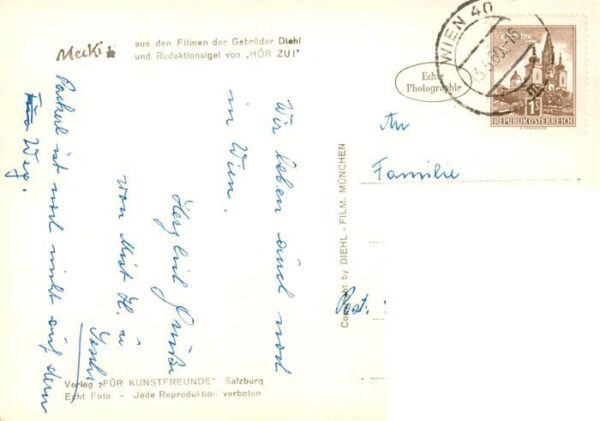 Mecki
aus den Filmen der Gebrüder Diehl
und Redaktionsigel von „HÖR ZU!"
WIEN 40
Echte
Photographie
1S
REPUBLIK ÖSTERREICH
An
Familie
Post.
Copyright by DIEHL - FILM, MÜNCHEN
Wir leben auch noch
in Wien.
Herzlich Grüße
von
u.
Packerl ist noch nicht auf dem
Weg.
Verlag „FÜR KUNSTFREUNDE" Salzburg
Echt Foto - Jede Reproduktion verboten